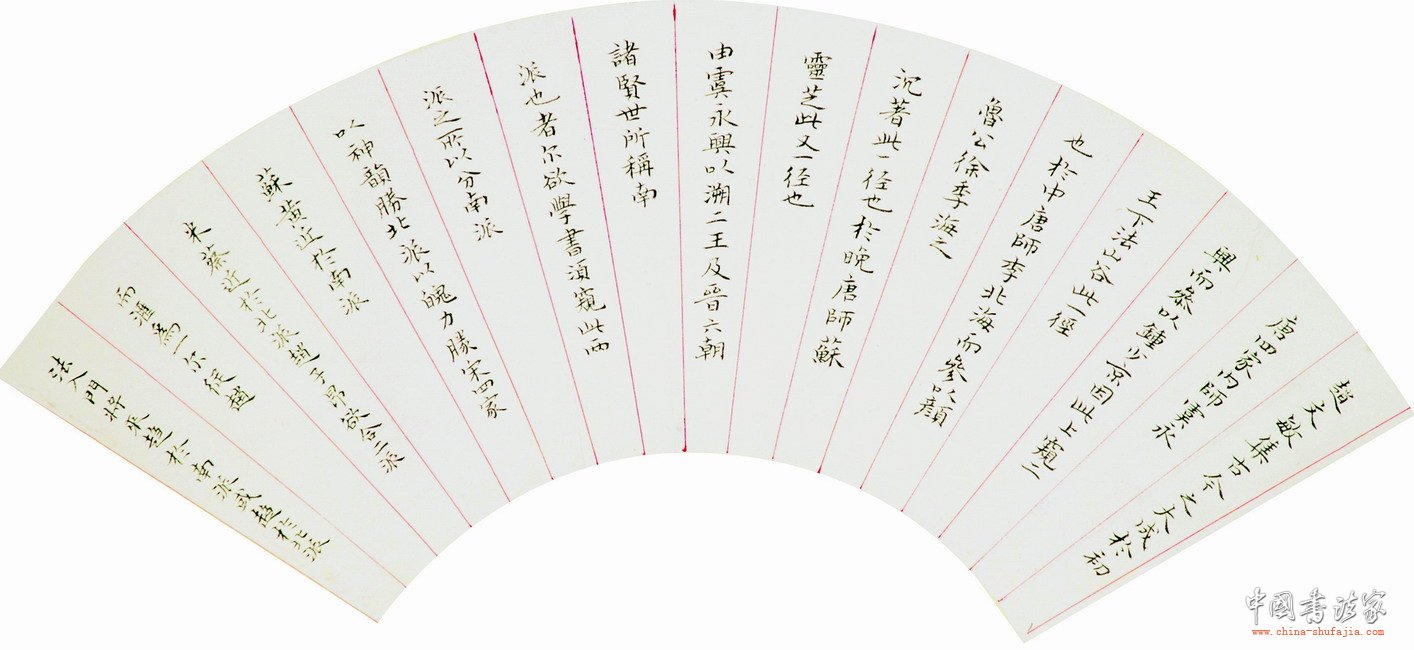 趙文敏集古今之大成於初
唐四家內師虞永
興而參以鍾少京因此上窺二
王下法山谷此一徑
也於中唐師李北海而參以顏
魯公徐季海之
沉著此一径也於晚唐師蘇
靈芝此又一径也
由虞永興以溯二王及晉六朝
諸賢世所稱南
派也者尔欲學書須窺此兩
派之所以分南派
以神韻勝北派以魄力勝宋四家
蘇黃近於南派
米蔡近於北派趙子昂欲合二派
而滙為一尔從趙
法入門將來趋於南派或趋於北派
中國书法家
www.china-shufajia.com